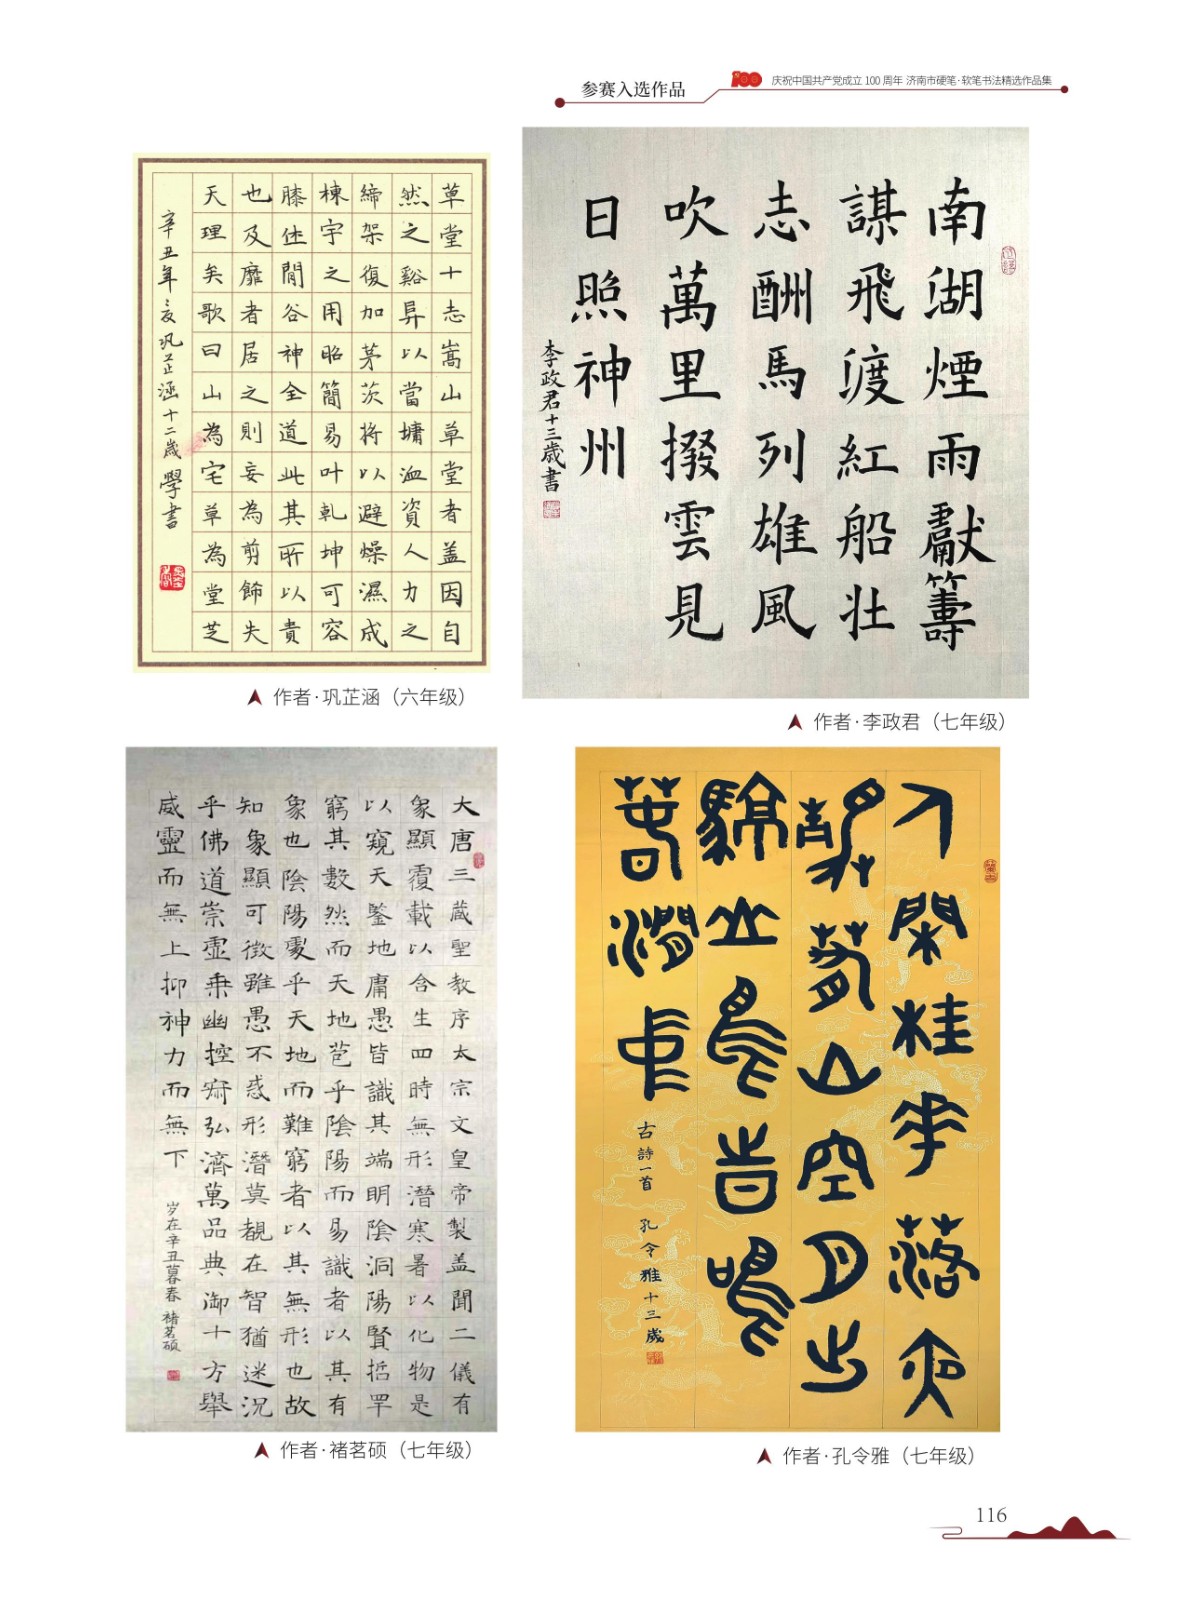 参赛入选作品
100 庆祝中国共产党成立 100 周年 济南市硬笔·软笔书法精选作品集
草堂十志嵩山草堂者盖因自
然之谿阜以當墉洫資人力之
締架復加茅茨將以避燥濕成
棟宇之用昭簡易叶乹坤可容
膝休閒谷神全道此其所以貴
也及靡者居之則妄為剪飾失
天理矣歌曰山為宅草為堂芝
辛丑年之夏巩芷涵十二歲學書
作者·巩芷涵（六年级）
南湖煙雨獻籌
謀飛渡紅船壯
志酬馬列雄風
吹萬里撥雲見
日照神州
李政君十三歲書
作者·李政君（七年级）
大唐三藏聖教序太宗文皇帝製盖聞二儀有
象顯覆載以含生四時無形潛寒暑以化物是
以窺天鑒地庸愚皆識其端明陰洞陽賢哲罕
窮其數然而天地苞乎陰陽而易識者以其有
象也陰陽處乎天地而難窮者以其無形也故
知象顯可徵雖愚不惑形潛莫覩在智猶迷況
乎佛道崇虛乘幽控寂弘濟萬品典御十方舉
威靈而無上抑神力而無下
岁在辛丑暮春 褚茗硕
作者·褚茗硕（七年级）
人閑桂華落夜
静春山空月出
驚山鳥時鳴
春澗中
古詩一首 孔令雅十三歲
作者·孔令雅（七年级）
116